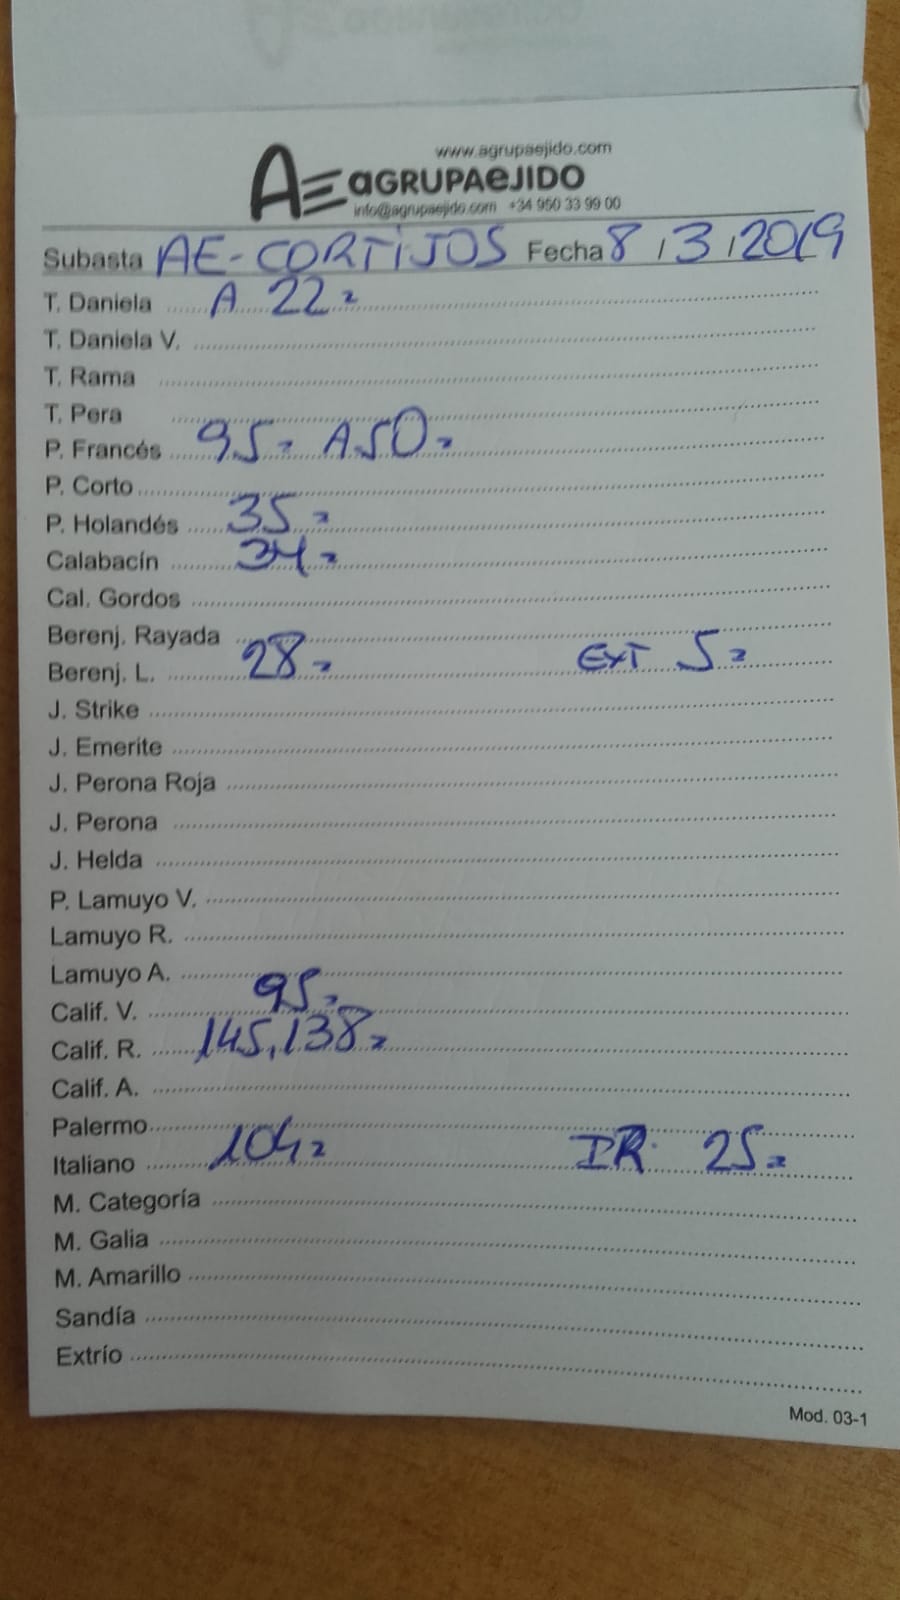 www.agrupaejido.com
AE aGRUPAeJIDO
info@agrupaejido.com +34 950 33 99 00
Subasta AE-CORTIJOS Fecha 8/3/2019
T. Daniela A 22=
T. Daniela V.
T. Rama
T. Pera
P. Francés 95= A50=
P. Corto
P. Holandés 35=
Calabacín 34=
Cal. Gordos
Berenj. Rayada
Berenj. L. 28= EXT 5=
J. Strike
J. Emerite
J. Perona Roja
J. Perona
J. Helda
P. Lamuyo V.
Lamuyo R.
Lamuyo A.
Calif. V. 95=
Calif. R. 145,138=
Calif. A.
Palermo
Italiano 104= DR. 25=
M. Categoría
M. Galia
M. Amarillo
Sandía
Extrío
Mod. 03-1